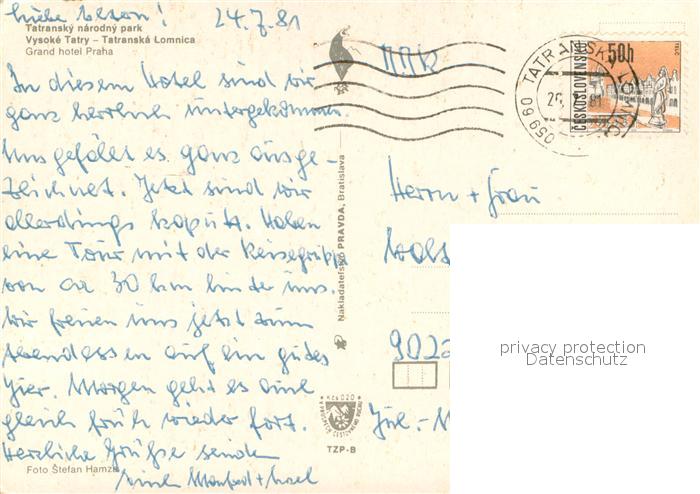 24.7.81
Tatranský národný park
Vysoké Tatry – Tatranská Lomnica
Grand hotel Praha
In diesem Hotel sind wir
ganz herrlich untergekommen.
Uns gefällt es ganz ausge-
zeichnet. Jetzt sind wir
allerdings kaputt. Haben
eine Tour mit der Reisegruppe
von ca 30 km hinter uns.
Wir freuen uns jetzt zum
Abendessen auf ein gutes
Bier. Morgen geht es auch
gleich früh wieder fort.
Herzliche Grüße senden
Euch Manfred +
Foto Štefan Hamza
Nakladateľstvo PRAVDA, Bratislava
Kčs 0,20
TZP-B
059 60 TATRANSKÁ LOMNICA
81
ČESKOSLOVENSKO
50h
TELČ
Herrn + Frau
902
privacy protection
Datenschutz